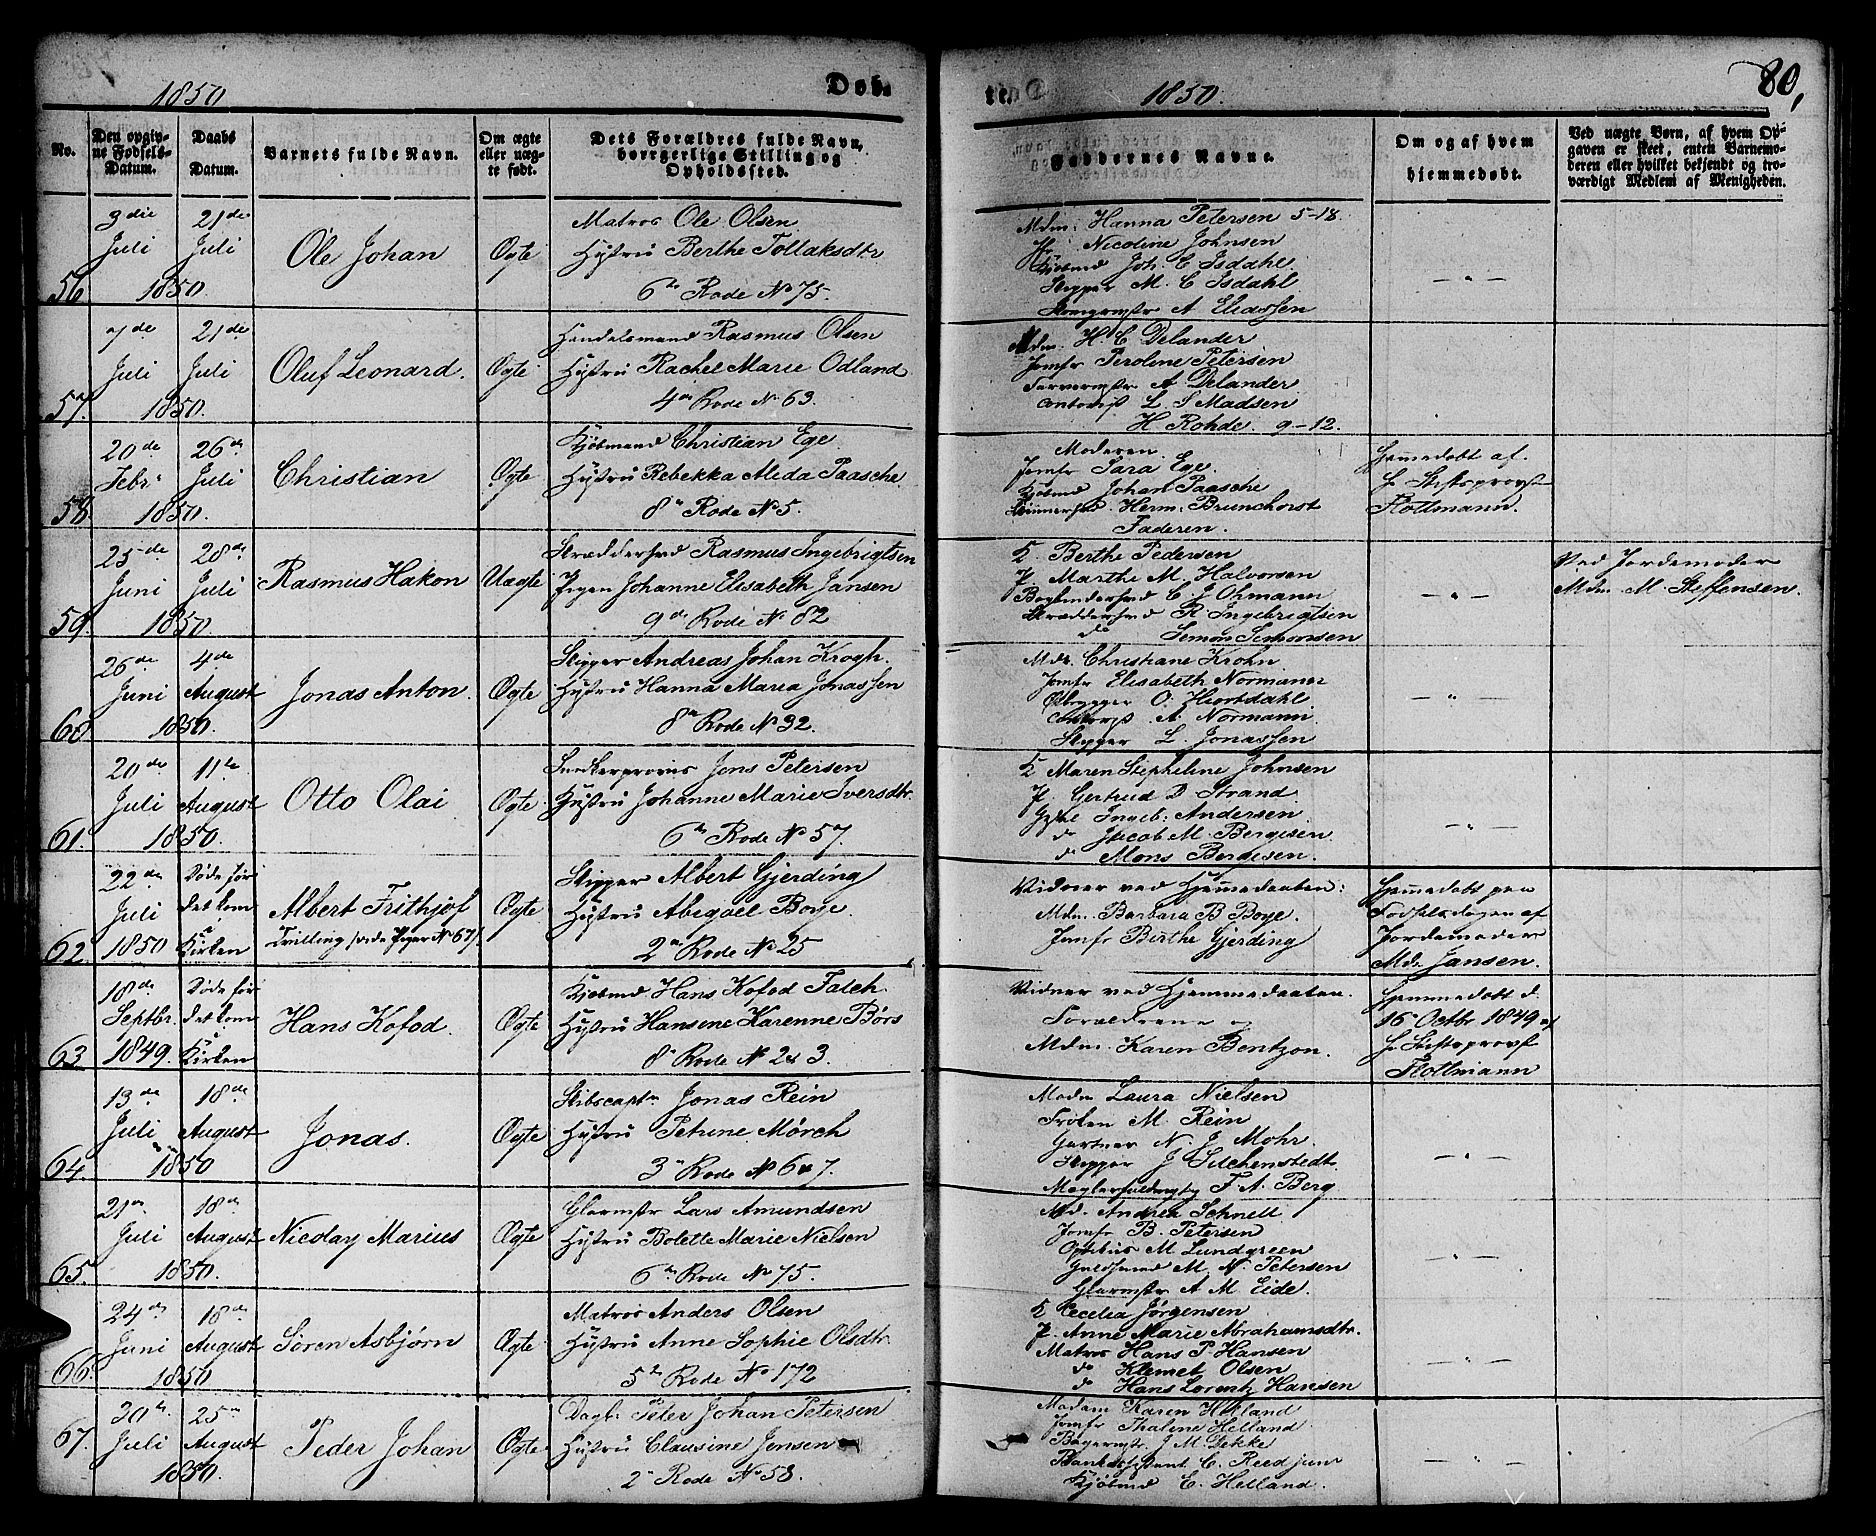 1850
Døb-
te.
1850.
80,
No.
Den opgiv-
ne Fødsels-
Datum.
Daabs
Datum.
Barnets fulde Navn.
Om ægte
eller uæg-
te født.
Dets Forældres fulde Navn,
borgerlige Stilling og
Opholdssted.
Faddernes Navne.
Om og af hvem
hjemmedøbt.
Ved uægte Børn, af hvem Op-
gaven er skeet, enten Barnemo-
deren eller hvilket bekjendt og tro-
værdigt Medlem af Menigheden.
56.
3die Juli 1850.
21de Juli
Ole Johan
Ægte
Matros Ole Olsen
Hustru Berthe Tollaksdtr
6te Rode No 75.
Mdm: Hanna Petersen 5-18.
Nicoline Johnsen
Kjøbmd Joh. C Isdahl
Skipper M. C Isdahl
A Eliassen
— " —
57.
7de Juli 1850.
21de Juli
Oluf Leonard.
Ægte
Handelsmand Rasmus Olsen
Hustru Rachel Marie Odland
4de Rode No 63.
Mdm. H. C Delander
Jomfr Peroline Petersen
Farvermstr A Delander
Contorist L S Madsen
H Rohde 9-12.
58.
20de Febr. 1850.
26de Juli
Christian
Ægte
Kjøbmand Christian Ege
Hustru Rebekka Alida Paasche
8de Rode No 5.
Moderen
Jomfr Sara Ege.
Kjøbmd Johan Paasche
Herm: Brunchorst
Faderen.
Hjemmedøbt af
Hr Stiftsprovst
Flottmann.
59.
25de Juni 1850.
28de Juli
Rasmus Hakon
Uægte
Skræddersvd Rasmus Ingebrigtsen
Pigen Johanne Elisabeth Jansen
9de Rode No 82
K. Berthe Pedersen
P. Marthe M. Halvorsen
Bogbindersvd C J Ohmann
Skræddersvd R. Ingebrigtsen
do Semon Semonsen
— " —
Ved Jordemoder
Mdm. M. Steffensen.
60.
26de Juni 1850.
4de August
Jonas Anton.
Ægte
Skipper Andreas Johan Krogh.
Hustru Hanna Maria Jonassen
8de Rode No 32.
Mdm. Christiane Krohn
Jomfr Elisabeth Normann
Ølbrygger O. Hiortdahl
Contorist A. Normann.
Skipper L. Jonassen
— " —
61.
20de Juli 1850.
11te August
Otto Olai
Ægte
Snedker Jens Petersen
Hustru Johanne Marie Iversdtr.
6te Rode No 57.
K Maren Stepheline Johnsen
P. Gertrud D Strand.
Ingeb: Andersen
do Jacob M. Bergesen
do Mons Bergesen.
— " —
62.
22de Juli 1850
Døde før
det kom
i Kirken
Albert Frithjof
Tvilling, se de Piger No 67.
Ægte
Skipper Albert Gjerding
Hustru Abigael Boye.
2den Rode No 25
Vidner ved Hjemmedaaben:
Mdm. Barbara B Boye.
Jomfr Berthe Gjerding
Hjemmedøbt paa
Fødselsdagen af
Jordemoder
Mdm Jansen.
63.
18de Septbr. 1849.
Døde før
det kom
i Kirken
Hans Kofod.
Ægte
Kjøbmd Hans Kofod Falch.
Hustru Hansene Karenne Børs
8de Rode No 2 & 3.
Vidner ved Hjemmedaaben.
Forældrene og
Mdm. Karen Bentzon.
Hjemmedøbt d.
16 Octbr 1849 af
Hr Stiftsprovst
Flottmann
64.
13de Juli 1850
18de August
Jonas.
Ægte
Skibscaptn Jonas Rein
Hustru Petrine Mørch
3die Rode No 6 & 7.
Madm Laura Nielsen
Frøken M. Rein
Gartner N. J Mohr.
Skipper J Silchenstedt.
Mæglerfuldmgtg F. A. Berg
— " —
65.
21de Juli 1850.
18de August
Nicolay Marius
Ægte
Glarmstr Lars Amundsen
Hustru Bolette Marie Nielsen
6te Rode No 75.
Md. Andrea Schnell
Jomfr B. Petersen
M Lundgreen
Guldsmed M. N. Petersen
Glarmstr A M Eide.
— " —
66.
24de Juni 1850
18de August
Søren Asbjørn
Ægte
Matros Anders Olsen
Hustru Anne Sophie Olsdtr.
5te Rode No 172
K Cecelia Jørgensen
P. Anne Marie Abrahamsdtr.
Matros Hans P. Hansen
do Klemet Olsen
do Hans Lorentz Hansen
— " —
67.
20de Juli 1850.
25de August
Peder Johan
Ægte
Dagl: Peter Johan Petersen
Hustru Clausine Jensen
2den Rode No 58.
Madam Karen Helland
Jomfr Thaline Helland
Bagermstr J M Dekke
C. Reed jun
Kjøbmd E. Helland.
— " —